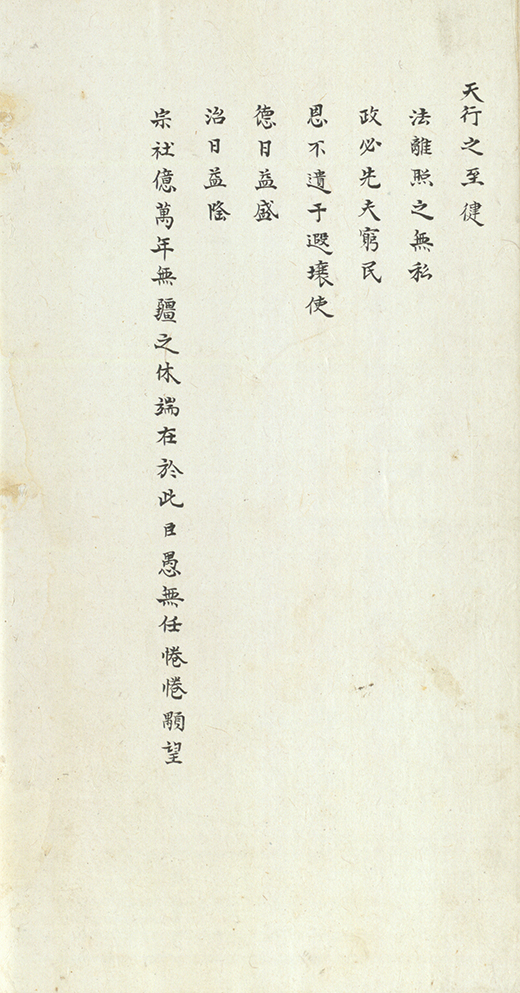 天行之至健
法離照之無私
政必先夫窮民
恩不遺于遐壤使
德日益盛
治日益隆
宗社億萬年無疆之休端在於此臣愚無任惓惓顒望